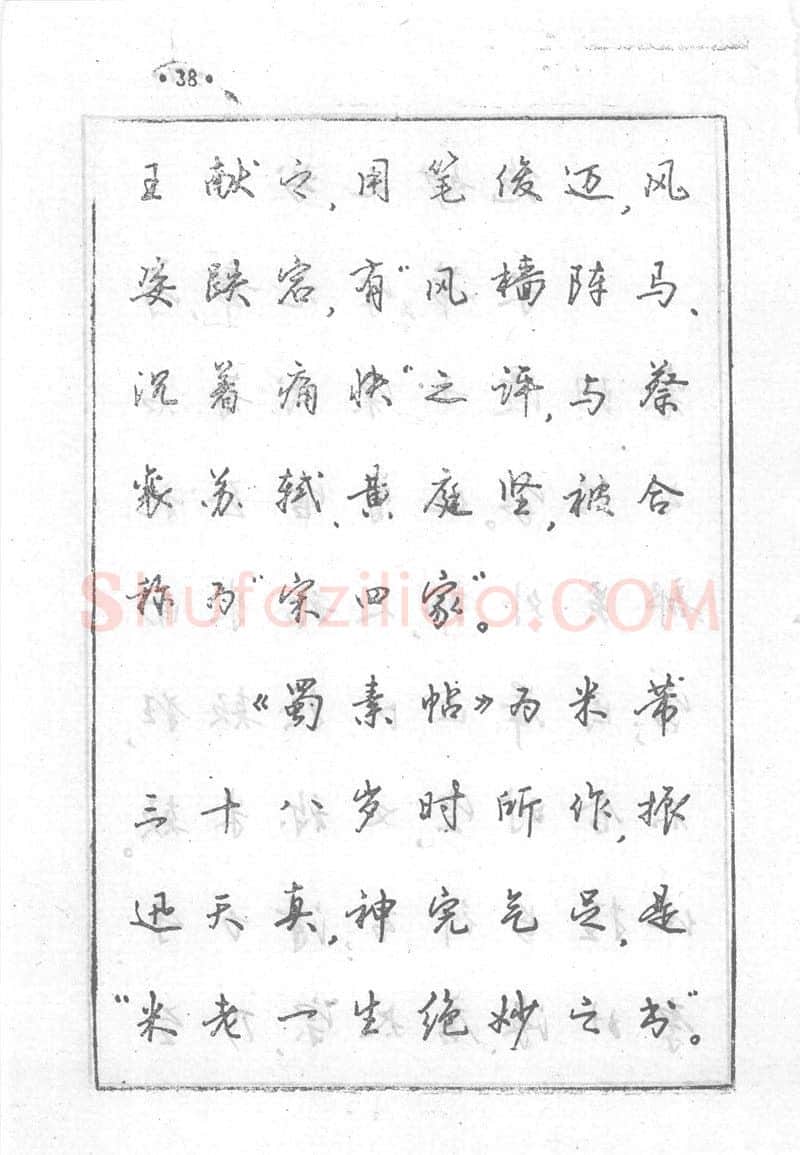 ·38·
王献之,用笔俊迈,风
姿跌宕,有“风樯阵马、
沉着痛快”之评,与蔡
襄苏轼、黄庭坚,被合
称为“宋四家”。
《蜀素帖》为米芾
三十八岁时所作,振
迅天真,神完气足,是
“米老一生绝妙之书”。
Shufaziliao.COM